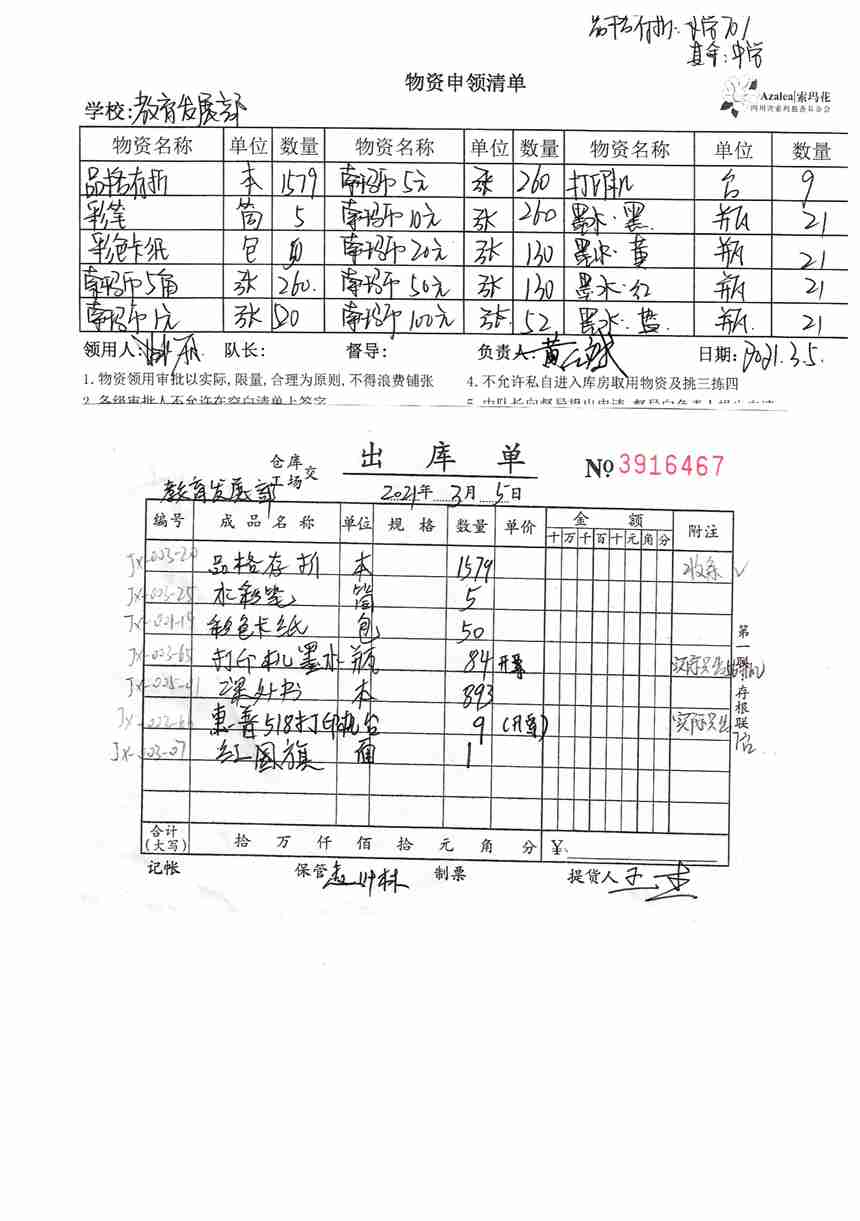 中学701
其余:中学
物资申领清单
Azalea|索玛花
学校:教育发展部
物资名称 单位 数量 物资名称 单位 数量 物资名称 单位 数量
品格存折 本 1579 索玛币5元 张 260 打印机 台 9
彩笔 筒 5 索玛币10元 张 260 墨水·黑 瓶 21
彩色卡纸 包 50 索玛币20元 张 130 墨水·黄 瓶 21
索玛币5角 张 260. 索玛币50元 张 130 墨水·红 瓶 21
索玛币1元 张 520 索玛币100元 张 52 墨水·蓝 瓶 21
领用人: 队长: 督导: 负责人: 日期:2021.3.5.
1.物资领用审批以实际,限量,合理为原则,不得浪费铺张 4.不允许私自进入库房取用物资及挑三拣四
2.各级审批人不允许在空白清单上签字
出库单 № 3916467
仓库
工场 交
教育发展部 2021年3月5日
编号 成品名称 单位 规格 数量 单价 金额 附注
十 万 千 百 十 元 角 分
Jx-003-20 品格存折 本 1579 收条
Jx-003-25 水彩笔 筒 5
Jx-001-19 彩色卡纸 包 50
Jx-003-65 打印机墨水 瓶 84
Jx-005-01 课外书 本 893
惠普518打印机 台 9
Jx-003-07 红国旗 面 1
第一联:存根联
合计(大写) 拾 万 仟 佰 拾 元 角 分 ¥:
记帐 保管 制票 提货人